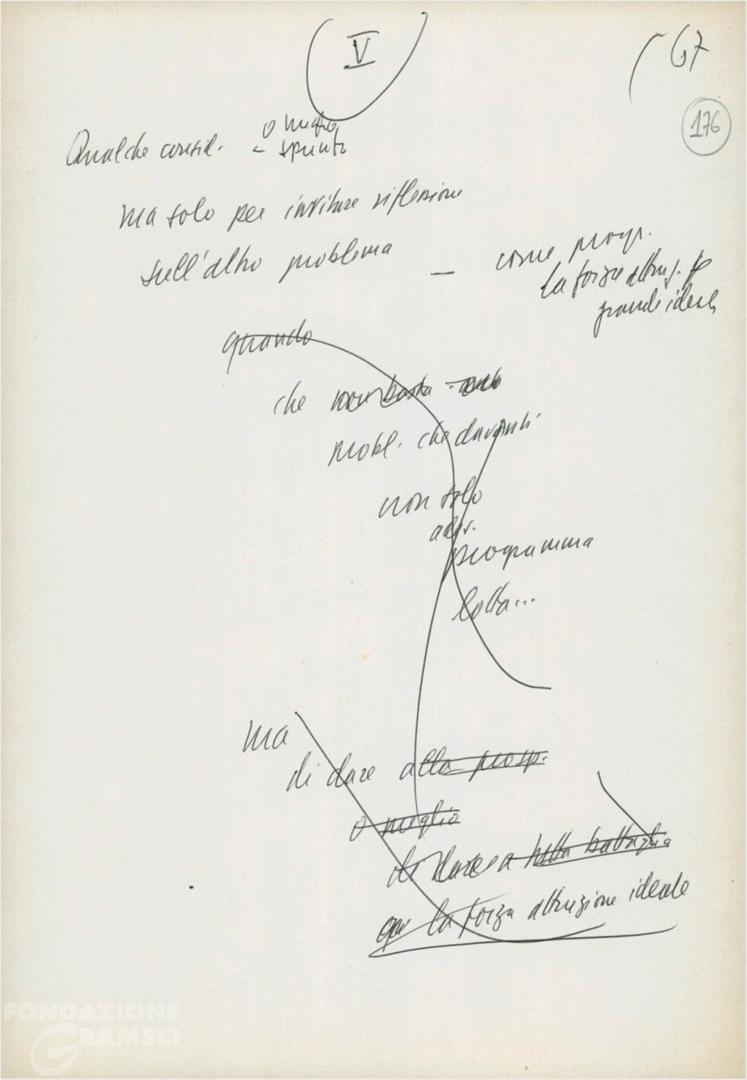 V
67
176
Qualche consid. - o meglio
spunti
ma solo per invitare riflessione
sull'altro problema — come progr.
la forza attraz.
grande ideale
quando
che non basta
mobl. che davanti
non solo
programma
lotta...
ma
di dare alla prosp.
o meglio
di dare a tutta battaglia
qu la forza attrazione ideale
FONDAZIONE
GRAMSCI